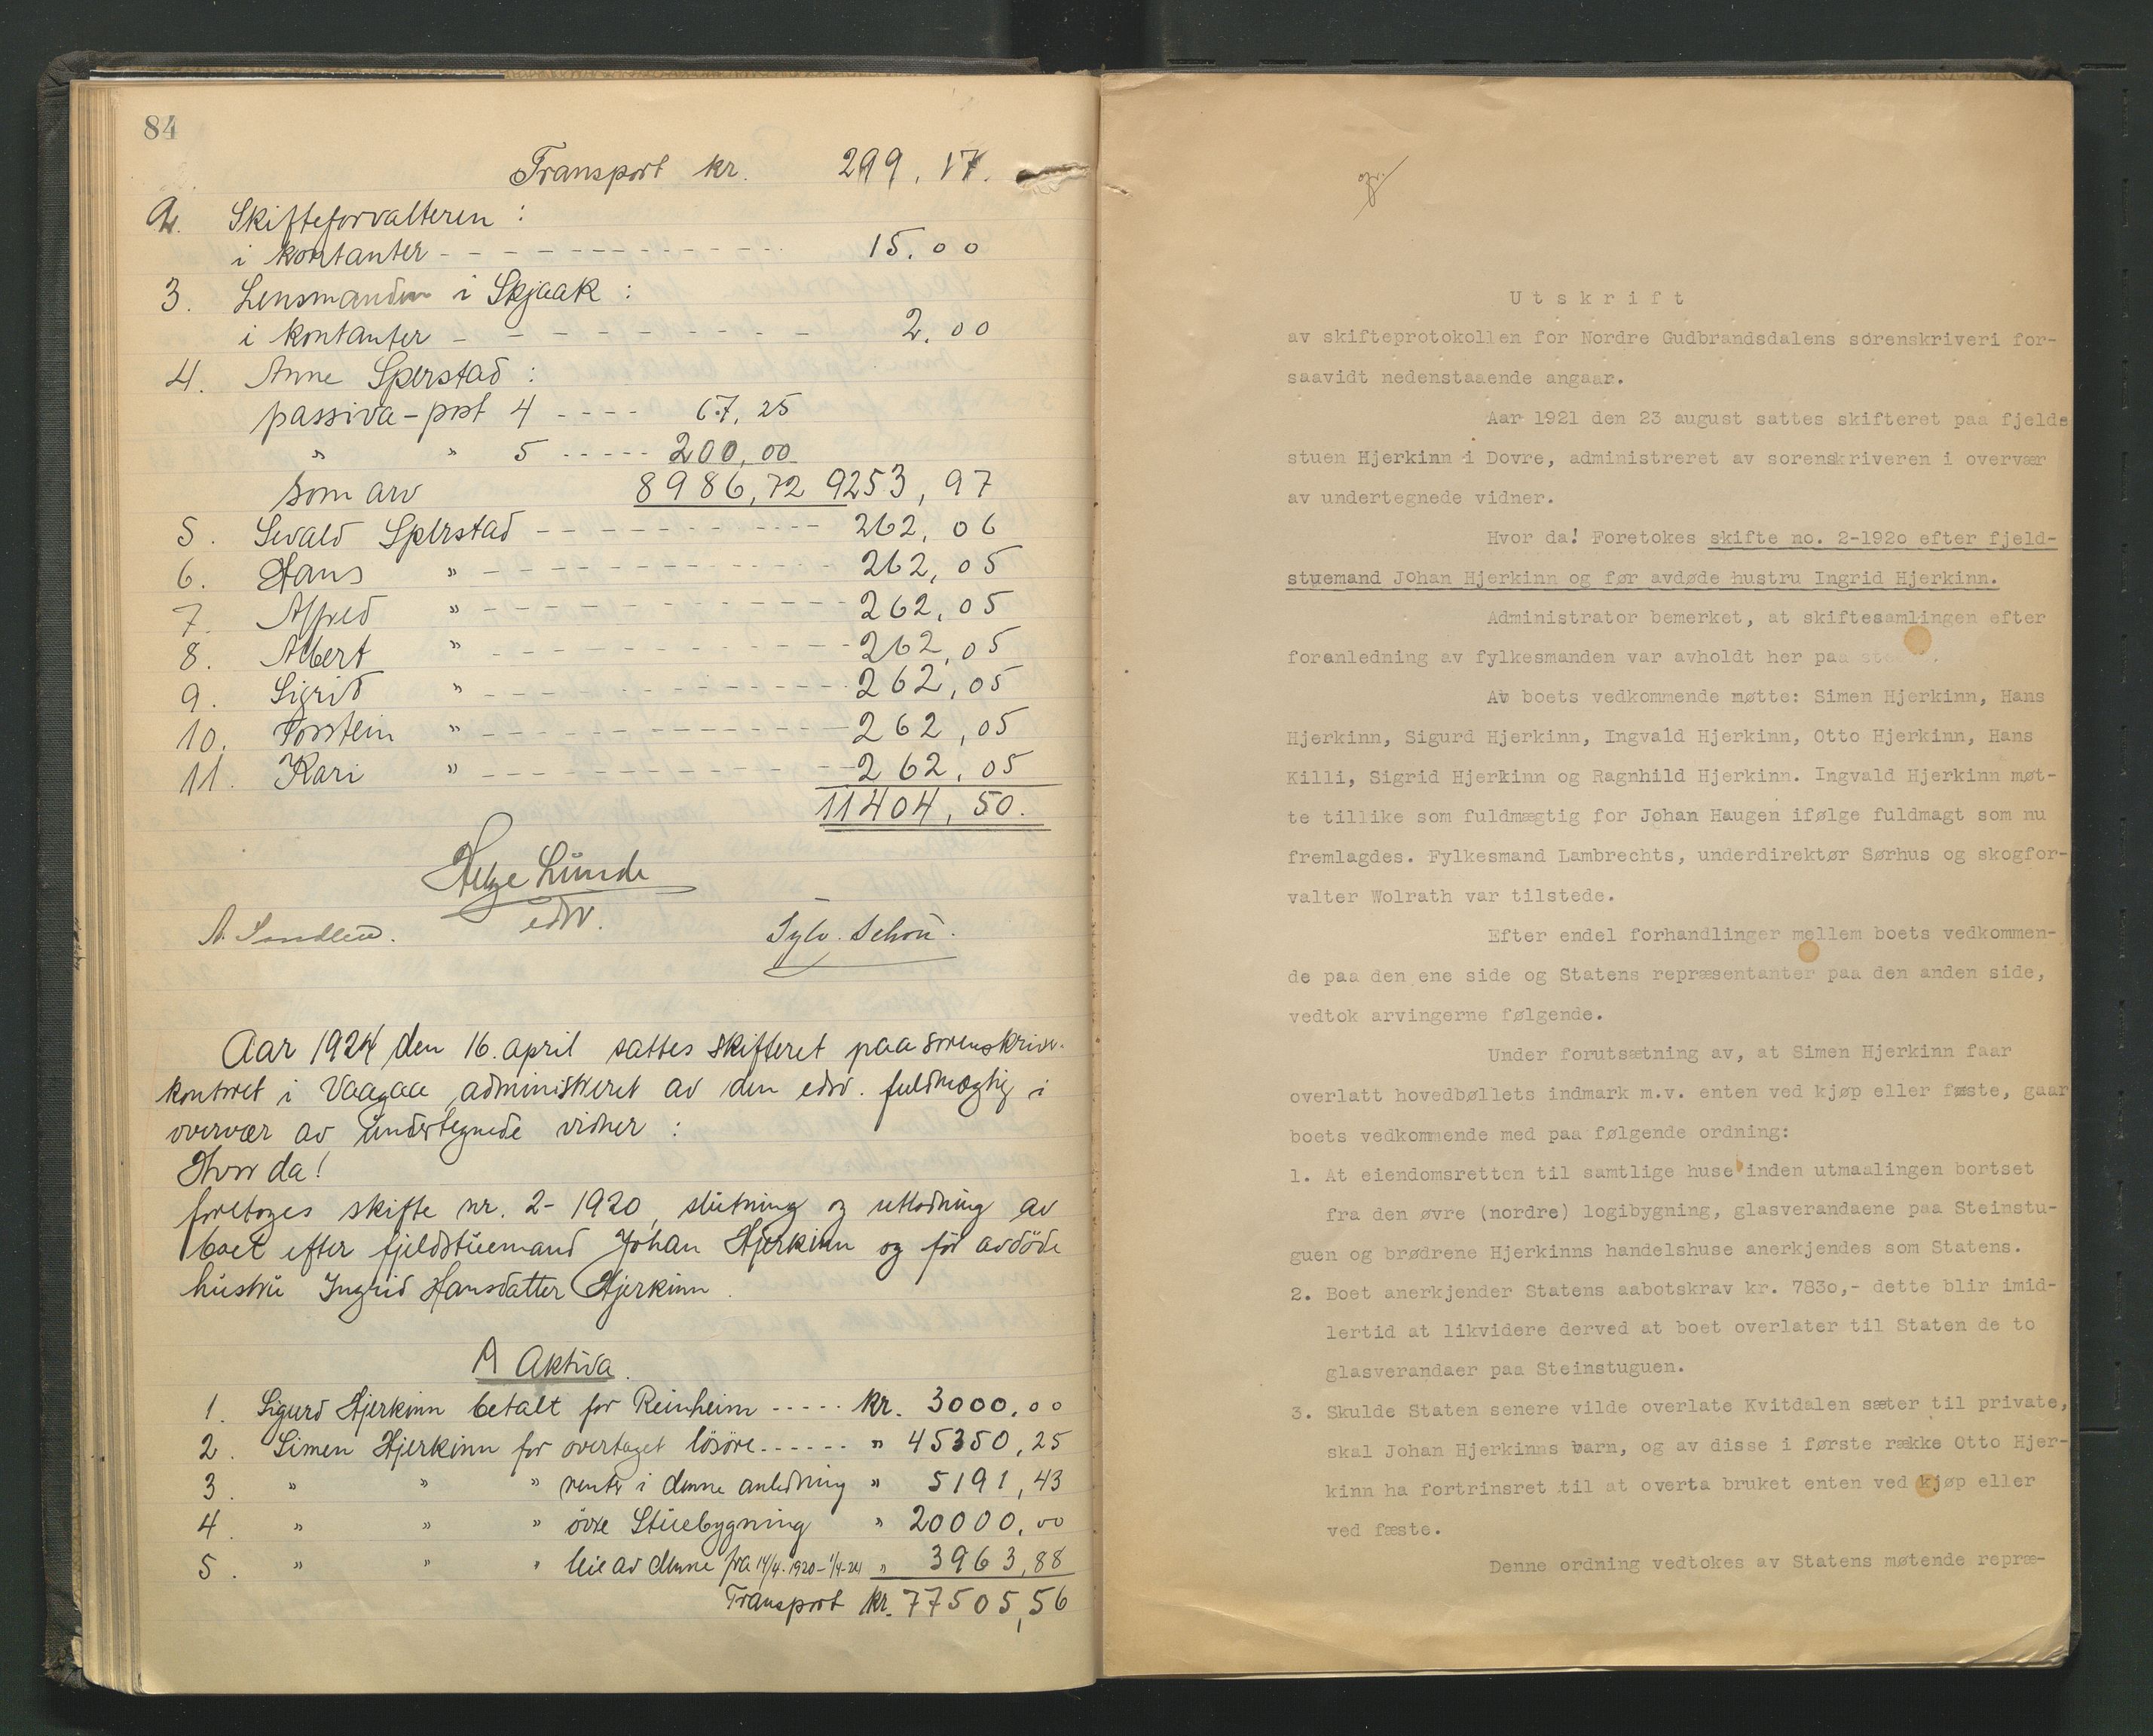 84
Transport kr. 299,17.
2. Skifteforvalteren :
i kontanter - - - - - - - - - - - 15.00
3. Lensmanden i Skjaak :
i kontanter - - - - - - - - - - 2.00
4. Anne Sperstad :
passiva-post 4 - - - - 67,25
" " 5 - - - - - 200,00
som arv 8986,72 9253,97
5. Sevald Sperstad - - - - - - - - - - 262,06
6. Hans " - - - - - - - - - - - - 262,05
7. Alfred " - - - - - - - - - - - 262,05
8. Albert " - - - - - - - - - - - 262,05
9. Sigrid " - - - - - - - - - - - 262,05
10. Torstein " - - - - - - - - - - - 262,05
11. Kari " - - - - - - - - - - - 262,05
11404,50.
Helge Lunde
edsv.
A. Sandlien. Sylv. Schou.
Aar 1924 den 16. april sattes skifteret paa sorenskriver-
kontoret i Vaagaa administreret av den edsv. fuldmægtig i
overvær av undertegnede vidner :
Hvor da!
foretoges skifte nr. 2-1920, slutning og utlodning av
boet efter fjeldstuemand Johan Hjerkinn og før avdøde
hustru Ingrid Hansdatter Hjerkinn.
A Aktiva.
1. Sigurd Hjerkinn betalt for Reinheim - - - - - kr. 3000.00
2. Simen Hjerkinn for overtaget løsøre - - - - - - " 45350,25
3. " " " renter i denne anledning " 5191,43
4. " " " øvre Stuebygning " 20000.00
5. " " " leie av denne fra 14/4.1920-1/4-24 " 3963,88
Transport kr. 77505,56
Utskrift
av skifteprotokollen for Nordre Gudbrandsdalens sorenskriveri for-
saavidt nedenstaaende angaar.
Aar 1921 den 23 august sattes skifteret paa fjelde
stuen Hjerkinn i Dovre, administreret av sorenskriveren i overvær
av undertegnede vidner.
Hvor da! Foretokes skifte no. 2-1920 efter fjeld-
stuemand Johan Hjerkinn og før avdøde hustru Ingrid Hjerkinn.
Administrator bemerket, at skiftesamlingen efter
foranledning av fylkesmanden var avholdt her paa
Av boets vedkommende møtte: Simen Hjerkinn, Hans
Hjerkinn, Sigurd Hjerkinn, Ingvald Hjerkinn, Otto Hjerkinn, Hans
Killi, Sigrid Hjerkinn og Ragnhild Hjerkinn. Ingvald Hjerkinn møt-
te tillike som fuldmægtig for Johan Haugen ifølge fuldmagt som nu
fremlagdes. Fylkesmand Lambrechts, underdirektør Sørhus og skogfor-
valter Wolrath var tilstede.
Efter endel forhandlinger mellem boets vedkommen-
de paa den ene side og Statens repræsentanter paa den anden side,
vedtok arvingerne følgende.
Under forutsætning av, at Simen Hjerkinn faar
overlatt hovedbøllets indmark m.v. enten ved kjøp eller fæste, gaar
boets vedkommende med paa følgende ordning:
1. At eiendomsretten til samtlige huse inden utmaalingen bortset
fra den øvre (nordre) logibygning, glasverandaene paa Steinstu-
guen og brødrene Hjerkinns handelshuse anerkjendes som Statens.
2. Boet anerkjender Statens aabotskrav kr. 7830,- dette blir imid-
lertid at likvidere derved at boet overlater til Staten de to
glasverandaer paa Steinstuguen.
3. Skulde Staten senere vilde overlate Kvitdalen sæter til private,
skal Johan Hjerkinns barn, og av disse i første række Otto Hjer-
kinn ha fortrinsret til at overta bruket enten ved kjøp eller
ved fæste.
Denne ordning vedtokes av Statens møtende repræ-